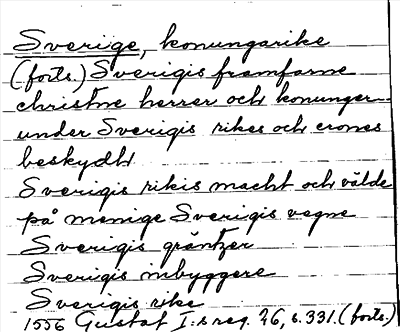 Sverige, konungarike
(forts.) Sverigis framfarne
christne herrer och konunger
under Sverigis rikes och crones
beskydh
Sverigis rikis macht och välde
på menige Sverigis vegne
Sverigis gräntzer
Sverigis inbyggere
Sverigis rike
1556 Gustaf I:s reg. 26, s. 331. (forts.)